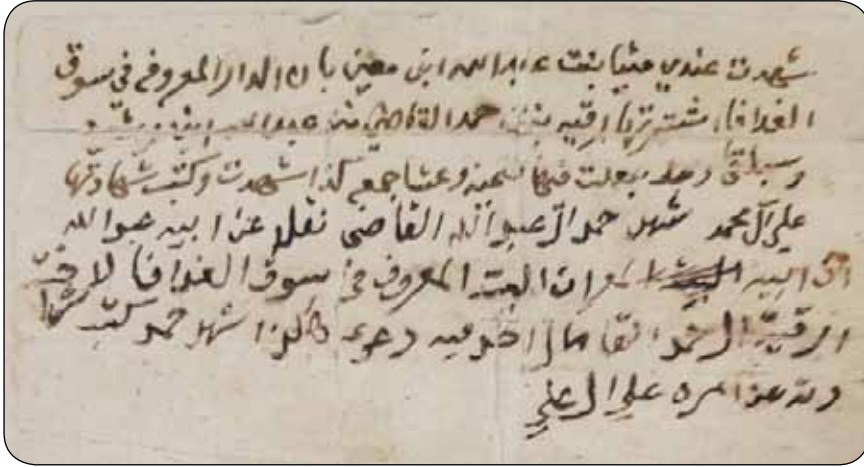 شهدت عندي ميثا بنت عبدالله ابن معين بان الدار المعروفه في سوق
الغدافا شترتها رقيه بنت حمد القاضي من عبدالله ابن
وسبلتها وجعلت فيها وعشا جمعه كذا شهدت وكتب شهادتها
علي آل محمد شهد حمد آل عبدالله القاضي نقلا عن ابيه عبدالله
ان البيت المعروف في سوق الغدافا لاخته
الرقية آل حمد القاضي ما لاحد فيه دعوه هاكذا شهد حمد كتب شها
دته عن امره علي آل علي